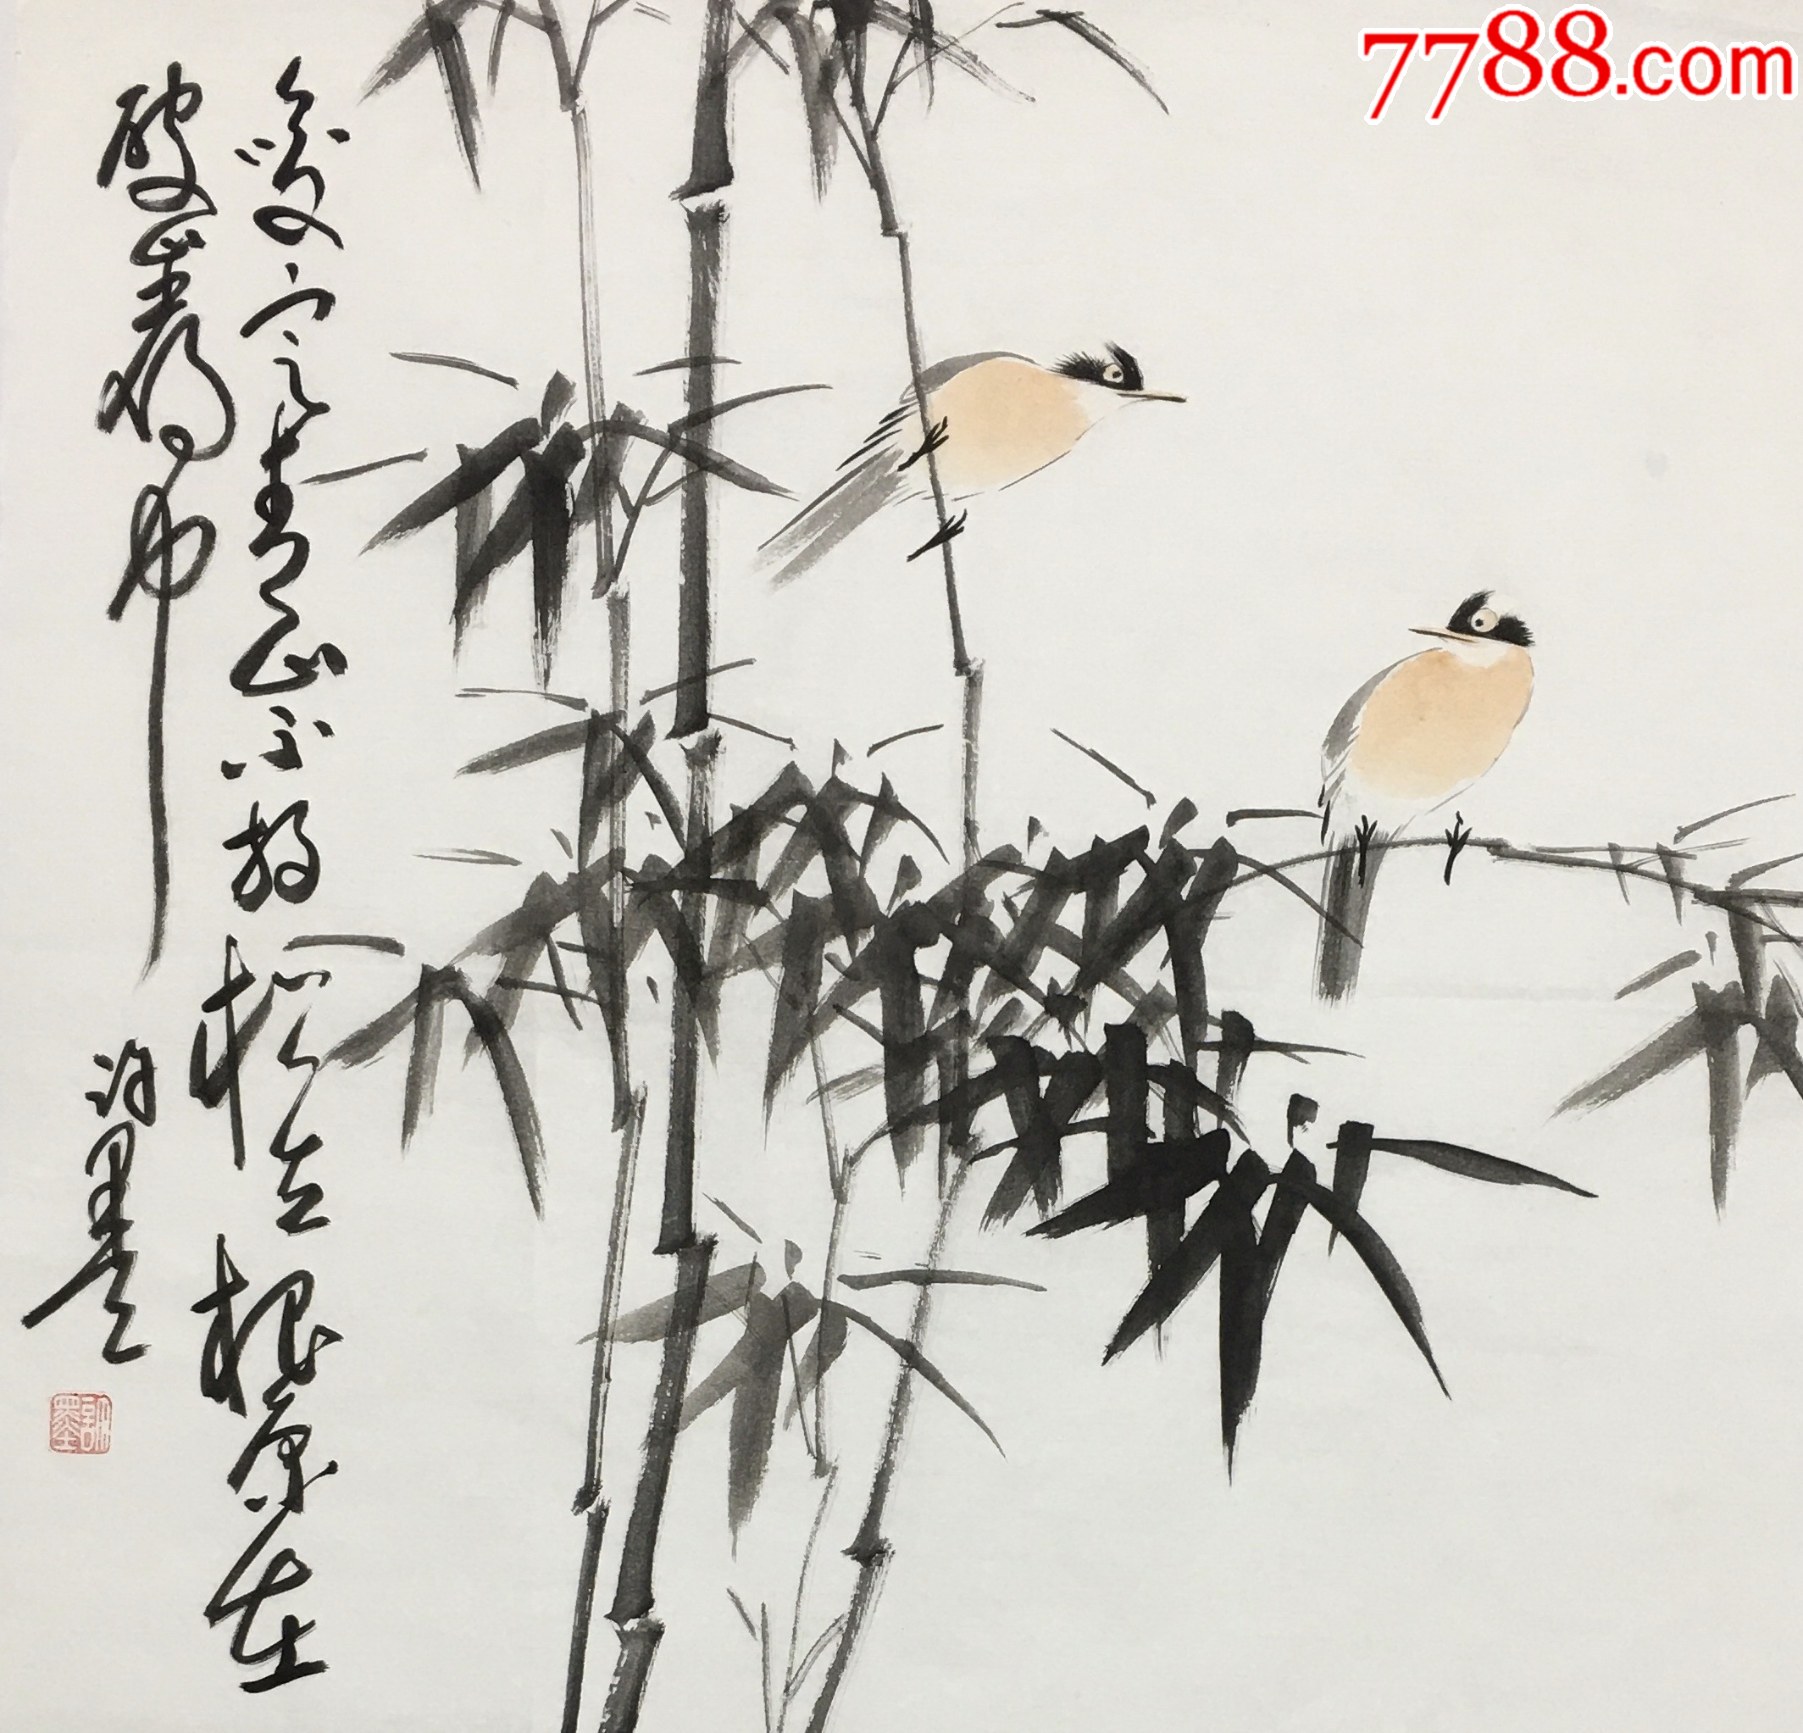 7788.com
咬定青山不放松立根原在
破岩中
许墨